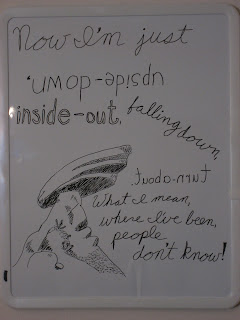 Now I'm just
upside-down,
inside-out,
falling down,
turn-about.
What I mean,
where I've been,
people
don't know!